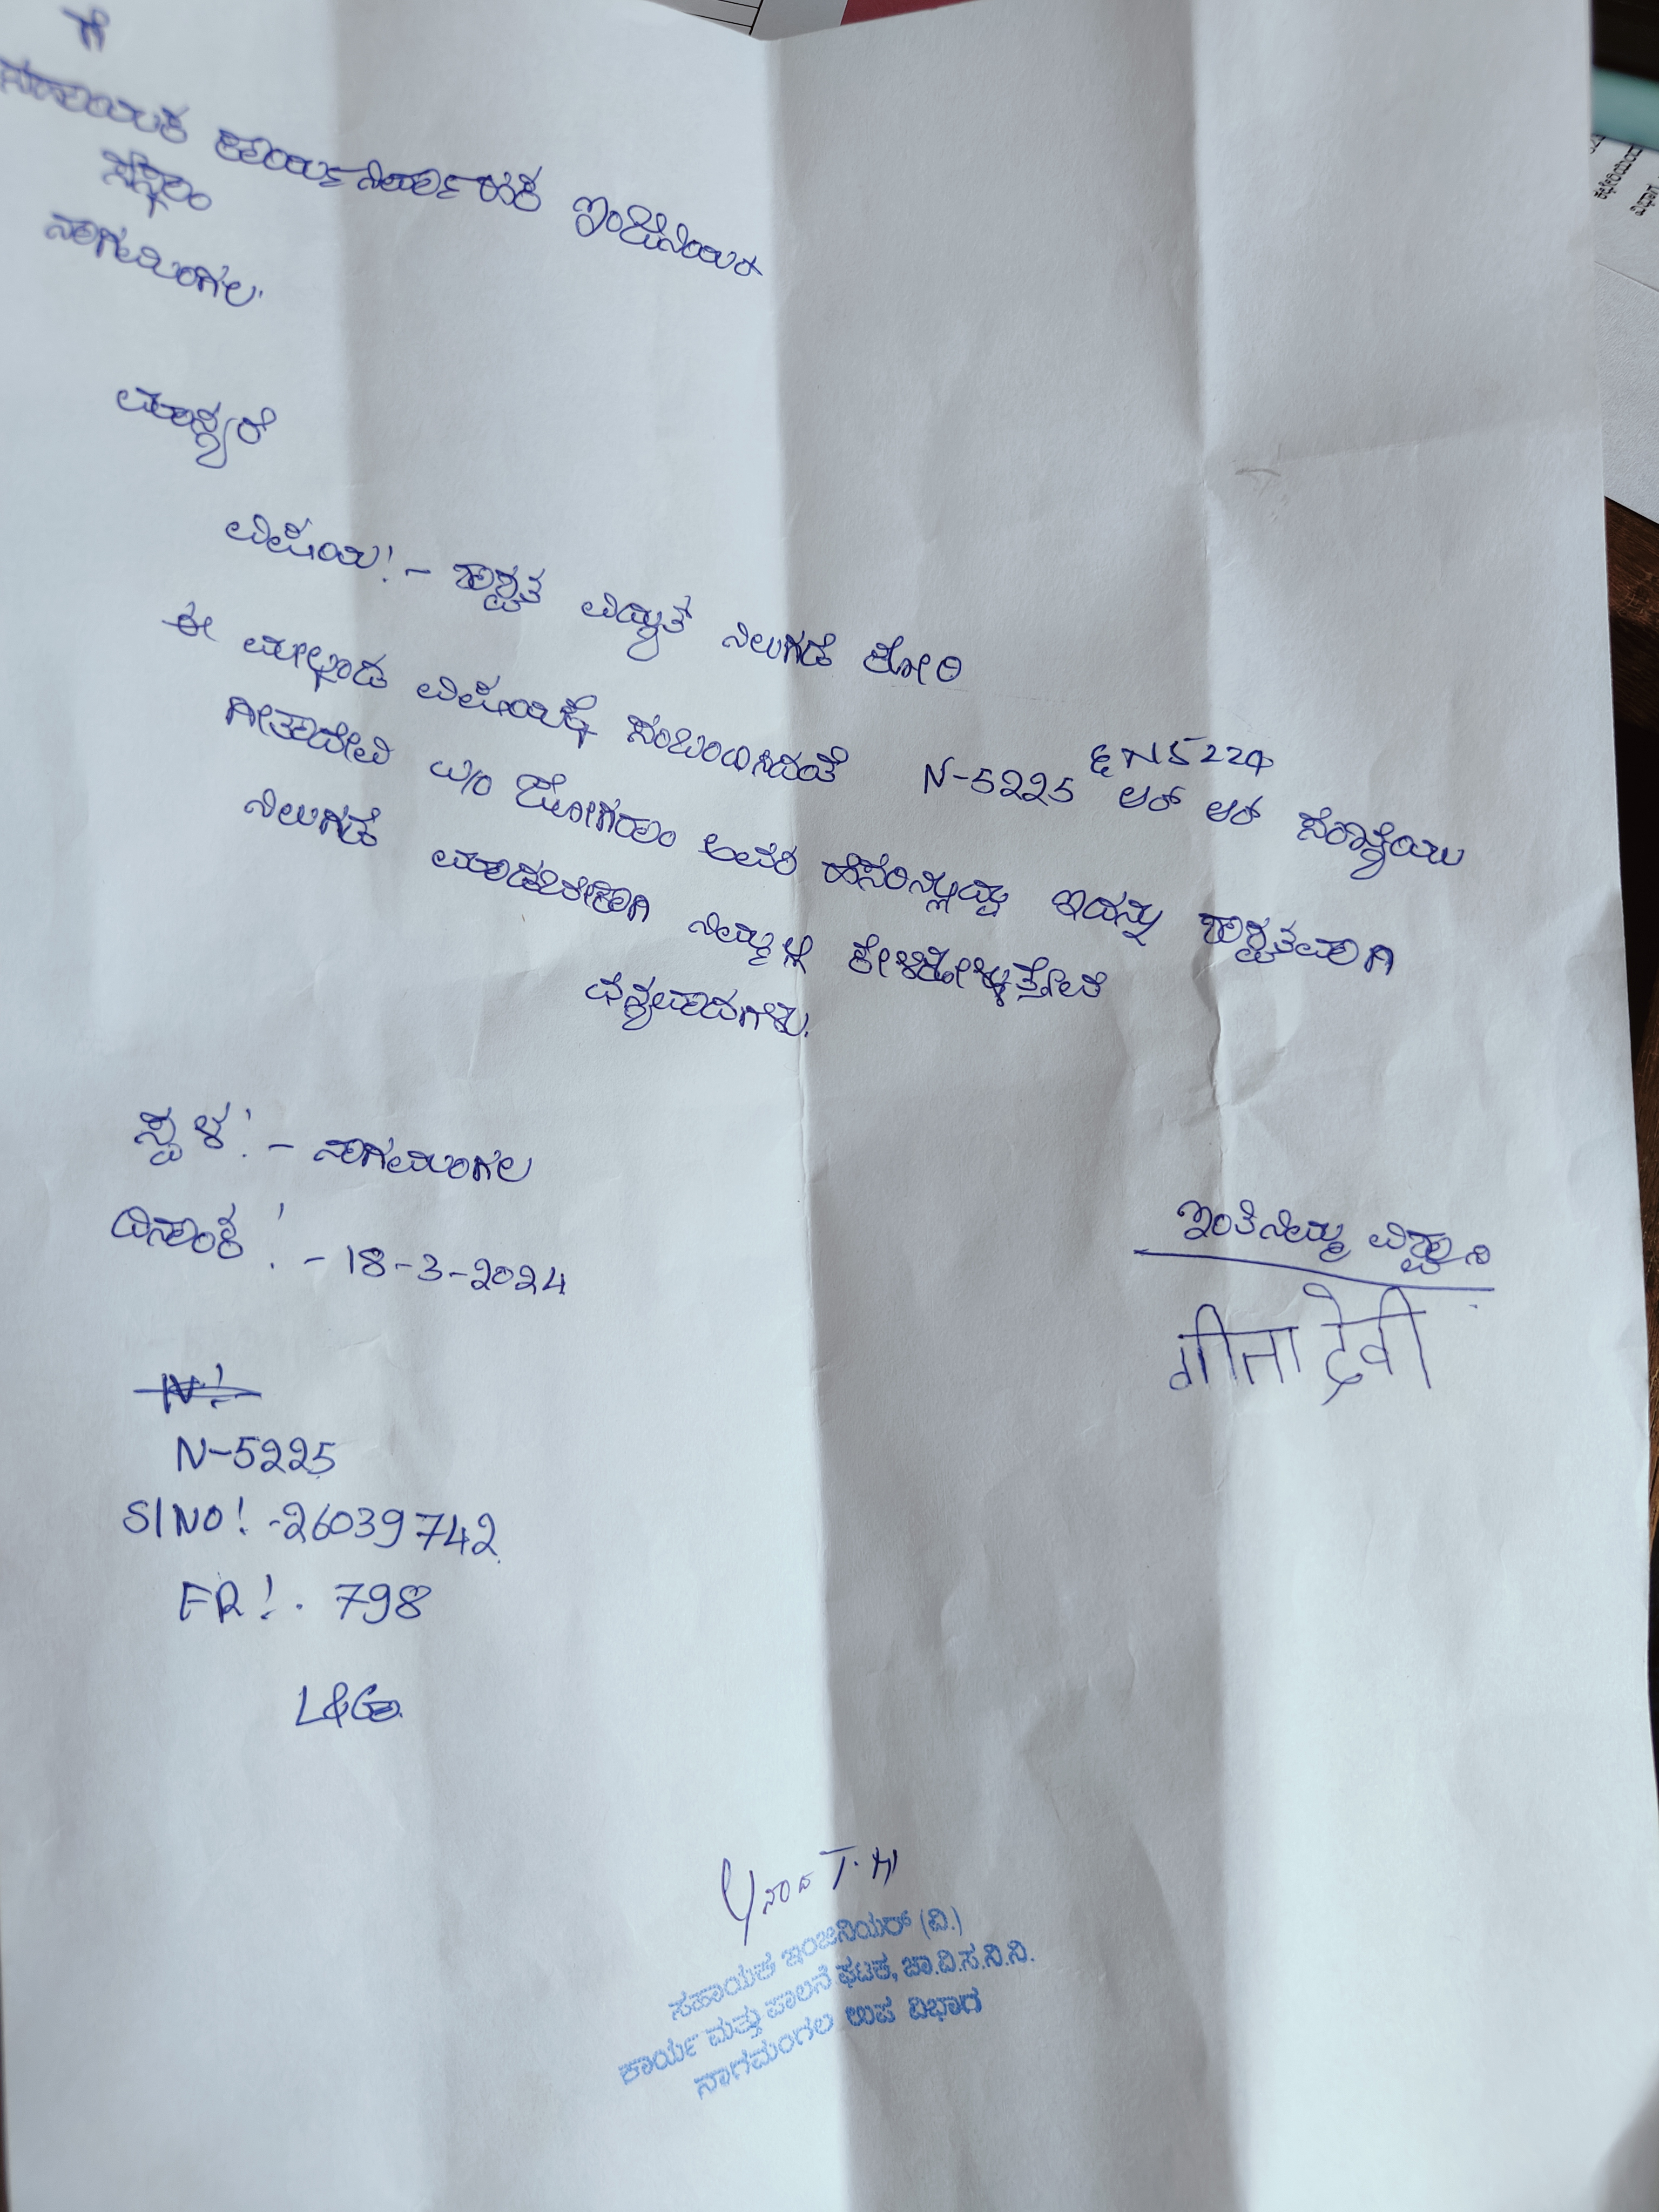 ಗೆ
ಸಹಾಯಕ ಕಾರ್ಯನಿರ್ವಾಹಕ ಇಂಜಿನಿಯರ
ಸೆಸ್ಕಾಂ
ನಾಗಮಂಗಲ.
ಮಾನ್ಯರೆ
ವಿಷಯ:- ಶಾಶ್ವತ ವಿದ್ಯುತ ನಿಲುಗಡೆ ಕೋರಿ
ಈ ಮೇಲ್ಕಂಡ ವಿಷಯಕ್ಕೆ ಸಂಬಂಧಿಸಿದಂತೆ N-5225 & N5224 ಆರ್ ಆರ್ ಸಂಖ್ಯೆಯು
ಗೀತಾದೇವಿ W/O ಜೋಗರಾಂ ಅವರ ಹೆಸರಿನಲ್ಲಿದ್ದು ಇದನ್ನು ಶಾಶ್ವತವಾಗಿ
ನಿಲುಗಡೆ ಮಾಡಬೇಕಾಗಿ ನಿಮ್ಮಲ್ಲಿ ಕೇಳಿಕೊಳ್ಳುತ್ತೇನೆ
ಧನ್ಯವಾದಗಳು.
ಸ್ಥಳ:- ನಾಗಮಂಗಲ
ದಿನಾಂಕ:- 18-3-2024
ಇಂತಿ ನಿಮ್ಮ ವಿಶ್ವಾಸಿ
गीता देवी
N-5225
SINO:-26039742
FR:. 798
L&G
T.H
ಸಹಾಯಕ ಇಂಜಿನಿಯರ್ (ವಿ.)
ಕಾರ್ಯ ಮತ್ತು ಪಾಲನೆ ಘಟಕ, ಚಾ.ವಿ.ಸ.ನಿ.ನಿ.
ನಾಗಮಂಗಲ ಉಪ ವಿಭಾಗ